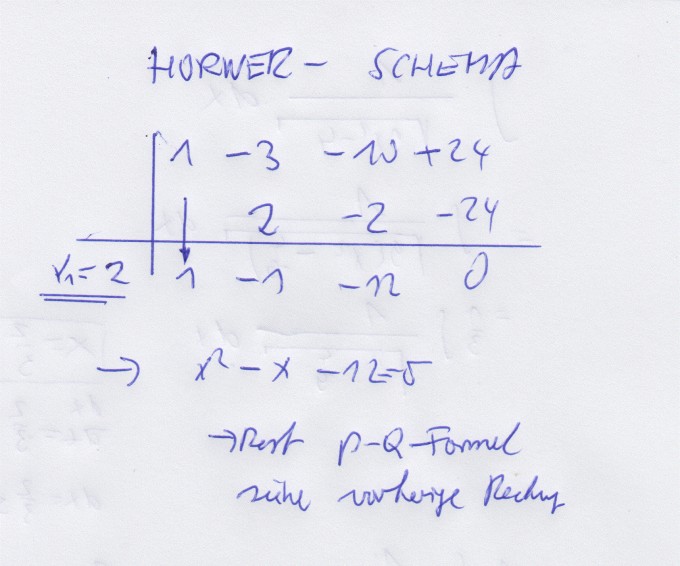 HORNER - SCHEMA
1 -3 -10 +24
2 -2 -24
x₁=2 1 -1 -12 0
→ x² - x - 12=0
→ Rest p-Q-Formel
siehe vorherige Rechng